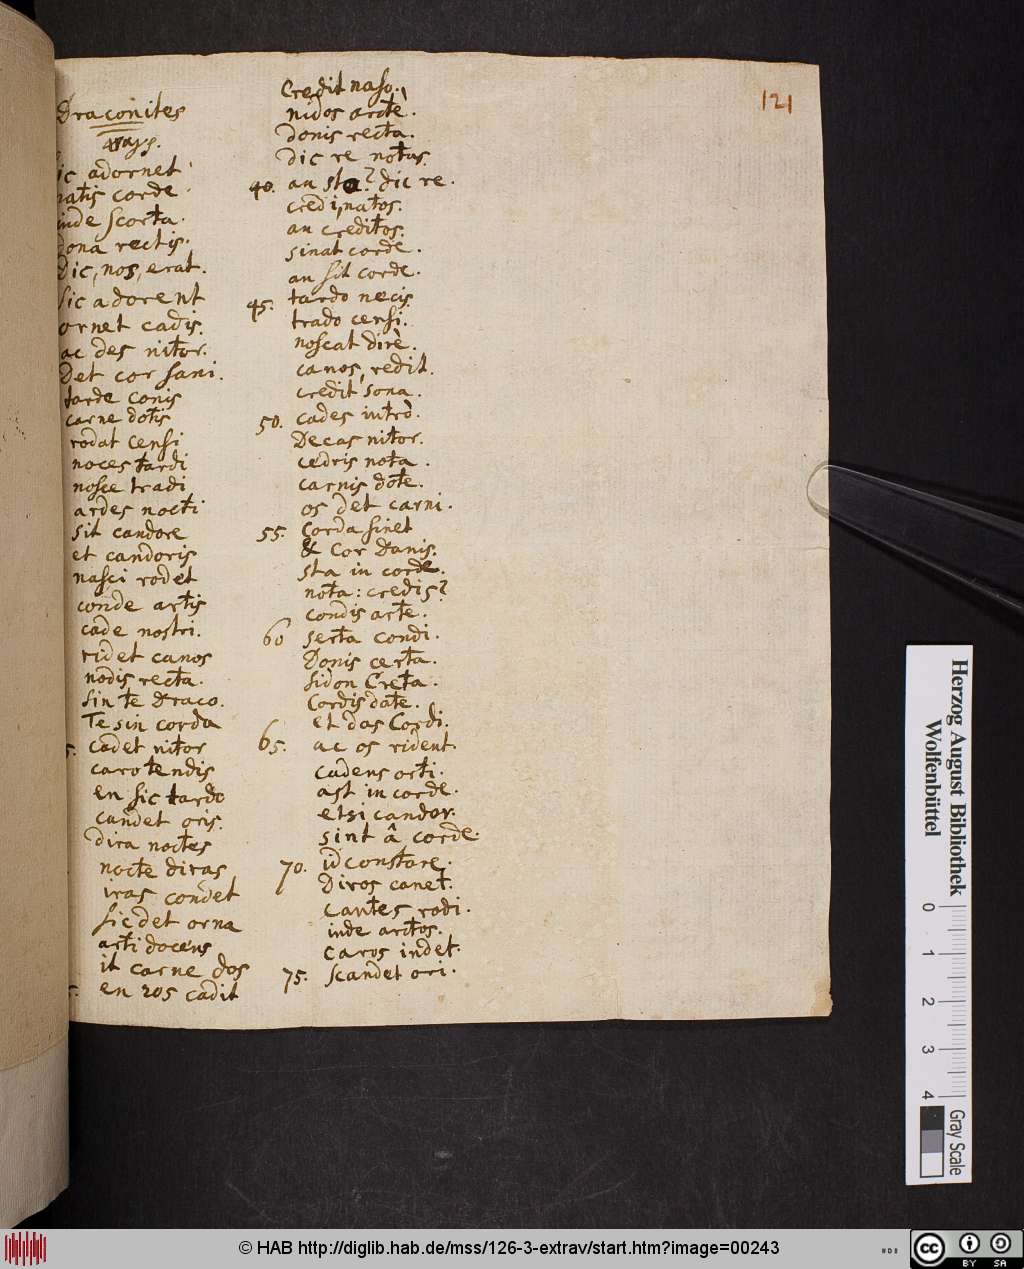 121
Draconites
ic adornet
natis corde
inde scorta.
dona rectis.
Dic, nos, erat.
sic adorent
ornet cadis.
ac des nitor.
Det cor sani.
tarde conis
carne dotis
rodat censi
noces tardi
nosce tradi
ardes nocti
sit candore
et candoris
nasci rodet
conde artis
cade nostri.
ridet canos
nodis recta.
sin te draco.
Te sin corda
cadet nitor
caro tendis
en sic tardo
candet oris.
dira noctes
nocte diras
iras condet
sic det orna
arti docens
it carne dos
en ros cadit
Credit naso.
nidos arcte.
donis recta.
dic re notas.
40. an sta? dic re.
credi, natos.
an creditos.
sinat corde.
an sit corde.
45. tardo necis.
trado censi.
noscat dirè.
canos, redit.
credit sona.
50. cades intrò.
Decas nitor.
cedris nota.
carnis dote.
os det carni.
55. Corda sinet
& cor danis.
sta in corde.
nota: credis?
condis arte.
60 serta condi.
Donis certa.
sidon Creta.
Cordis date.
et das Cordi.
65. ac os rident.
cadens orti.
ast in corde.
etsi candor.
sint â corde.
70. id constare.
Diros canet.
Cantes rodi.
inde arctos.
Caros indet.
75. scandet ori.
Herzog August Bibliothek
Wolfenbüttel
0 1 2 3 4
Gray Scale
© HAB http://diglib.hab.de/mss/126-3-extrav/start.htm?image=00243
cc BY SA